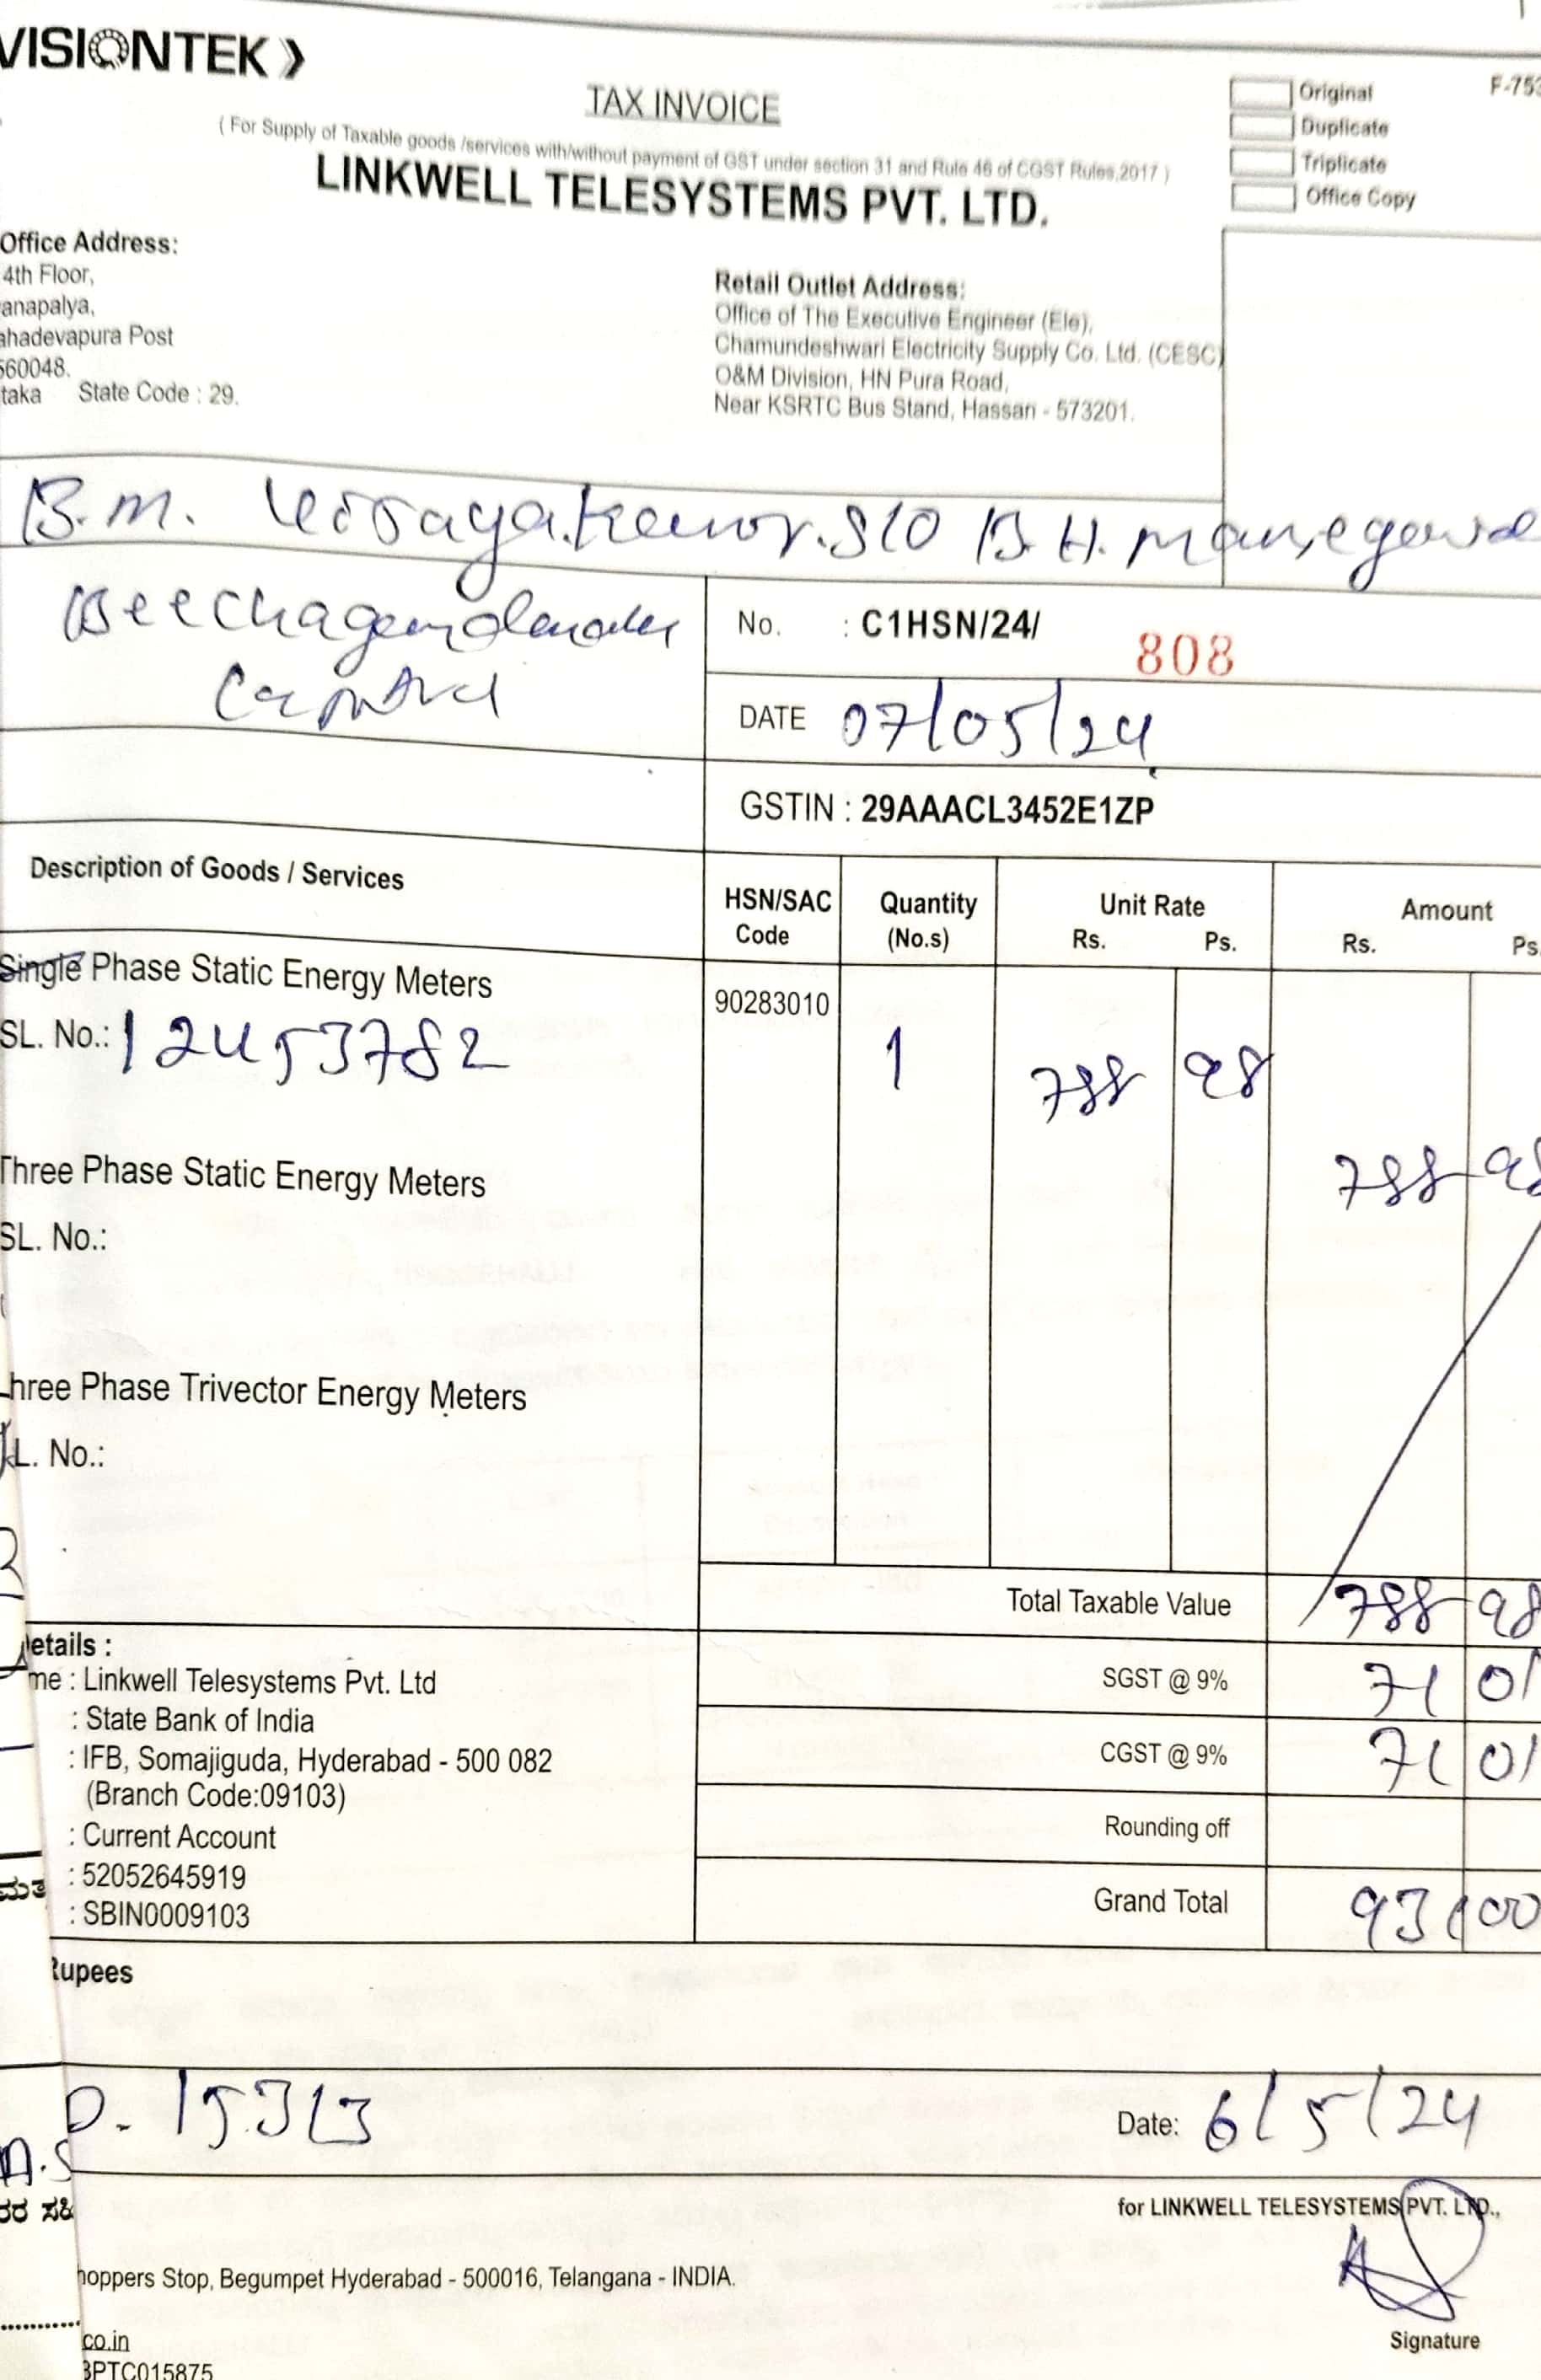 VISIONTEK
TAX INVOICE
( For Supply of Taxable goods /services with/without payment of GST under section 31 and Rule 46 of CGST Rules,2017 )
LINKWELL TELESYSTEMS PVT. LTD.
Original
F-753
Duplicate
Triplicate
Office Copy
Office Address:
4th Floor,
anapalya,
ahadevapura Post
560048.
taka State Code : 29.
Retail Outlet Address:
Office of The Executive Engineer (Ele),
Chamundeshwari Electricity Supply Co. Ltd. (CESC)
O&M Division, HN Pura Road,
Near KSRTC Bus Stand, Hassan - 573201.
B.M. S/O B.H.
No. : C1HSN/24/ 808
DATE 07/05/24
GSTIN : 29AAACL3452E1ZP
Description of Goods / Services
HSN/SAC Code
Quantity (No.s)
Unit Rate Rs. Ps.
Amount Rs. Ps.
Single Phase Static Energy Meters
90283010
SL. No.: 12453782
1 788 98
788 98
Three Phase Static Energy Meters
SL. No.:
hree Phase Trivector Energy Meters
L. No.:
Total Taxable Value 788 98
etails :
me : Linkwell Telesystems Pvt. Ltd
SGST @ 9% 71 01
: State Bank of India
: IFB, Somajiguda, Hyderabad - 500 082
CGST @ 9% 71 01
(Branch Code:09103)
Rounding off
: Current Account
: 52052645919
Grand Total 931 00
: SBIN0009103
Rupees
D. 15313
Date: 6/5/24
for LINKWELL TELESYSTEMS PVT. LTD.,
hoppers Stop, Begumpet Hyderabad - 500016, Telangana - INDIA.
Signature
co.in
3PTC015875